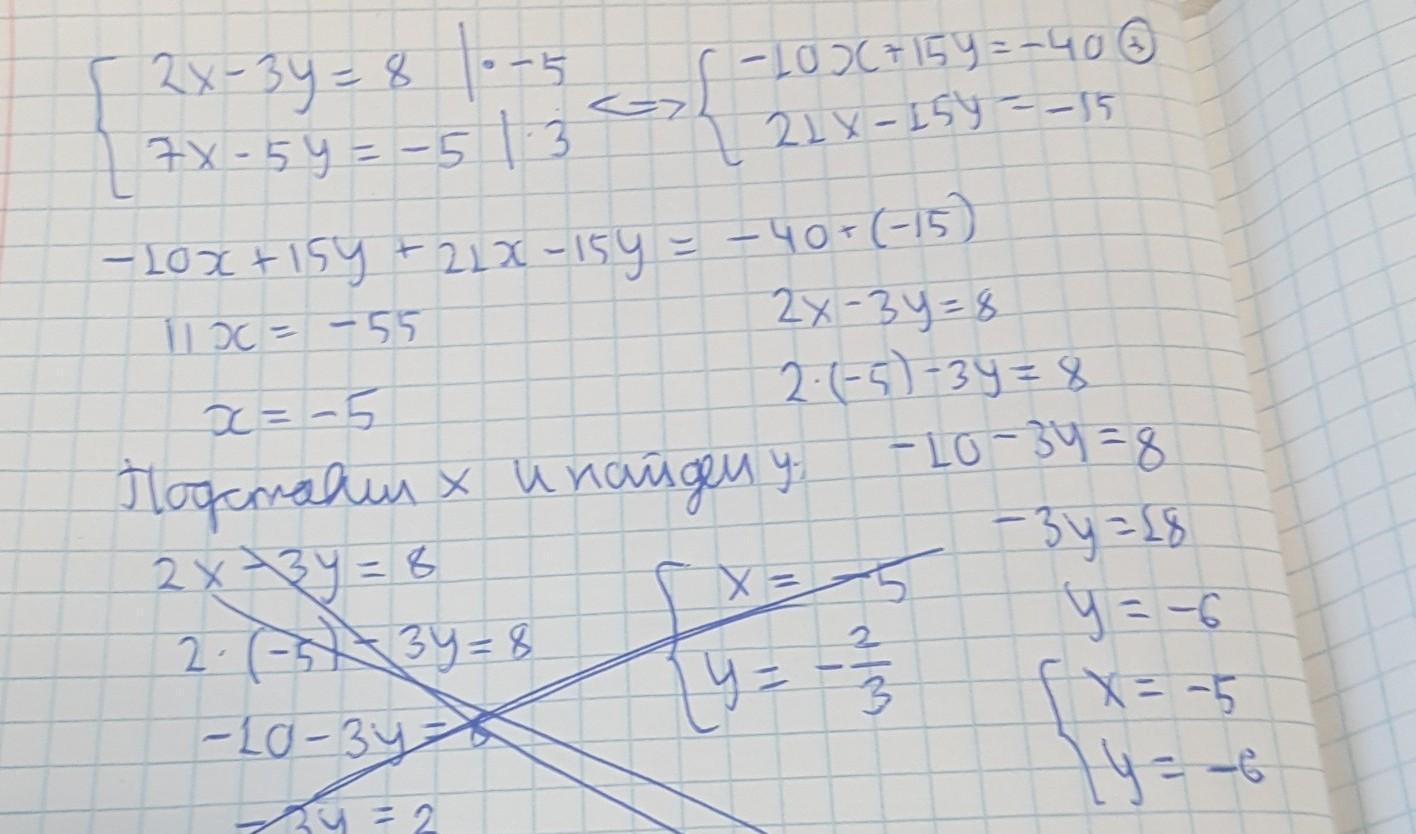 2x-3y=8 |·-5 <=> -10x+15y=-40 (+)
7x-5y=-5 |·3 21x-15y=-15
-10x+15y+21x-15y=-40+(-15)
11x=-55
x=-5
Подставим x и найдем y:
2x-3y=8
2·(-5)-3y=8
-10-3y=8
-3y=2
x=-5
y=-2/3
2x-3y=8
2·(-5)-3y=8
-10-3y=8
-3y=18
y=-6
x=-5
y=-6